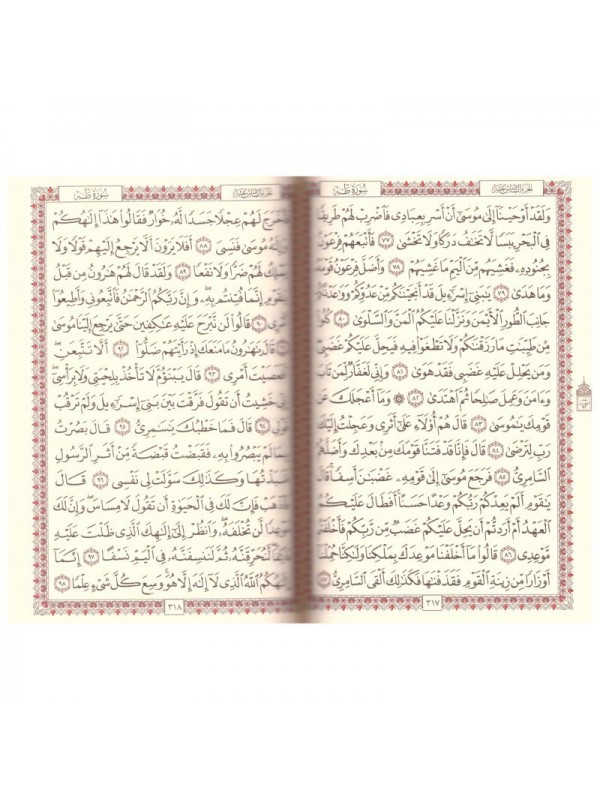 الجزء السادس عشر
سُورَةُ طه
وَلَقَدْ أَوْحَيْنَآ إِلَىٰ مُوسَىٰٓ أَنْ أَسْرِ بِعِبَادِى فَٱضْرِبْ لَهُمْ طَرِيقًا
فِى ٱلْبَحْرِ يَبَسًا لَّا تَخَٰفُ دَرَكًا وَلَا تَخْشَىٰ ٧٧ فَأَتْبَعَهُمْ فِرْعَوْنُ
بِجُنُودِهِۦ فَغَشِيَهُم مِّنَ ٱلْيَمِّ مَا غَشِيَهُمْ ٧٨ وَأَضَلَّ فِرْعَوْنُ قَوْمَهُۥ
وَمَا هَدَىٰ ٧٩ يَٰبَنِىٓ إِسْرَٰٓءِيلَ قَدْ أَنجَيْنَٰكُم مِّنْ عَدُوِّكُمْ وَوَٰعَدْنَٰكُمْ
جَانِبَ ٱلطُّورِ ٱلْأَيْمَنَ وَنَزَّلْنَا عَلَيْكُمُ ٱلْمَنَّ وَٱلسَّلْوَىٰ ٨٠ كُلُوا۟
مِن طَيِّبَٰتِ مَا رَزَقْنَٰكُمْ وَلَا تَطْغَوْا۟ فِيهِ فَيَحِلَّ عَلَيْكُمْ غَضَبِى
وَمَن يَحْلِلْ عَلَيْهِ غَضَبِى فَقَدْ هَوَىٰ ٨١ وَإِنِّى لَغَفَّارٌ لِّمَن تَابَ
وَءَامَنَ وَعَمِلَ صَٰلِحًا ثُمَّ ٱهْتَدَىٰ ٨٢ ۞ وَمَآ أَعْجَلَكَ عَن
قَوْمِكَ يَٰمُوسَىٰ ٨٣ قَالَ هُمْ أُو۟لَآءِ عَلَىٰٓ أَثَرِى وَعَجِلْتُ إِلَيْكَ
رَبِّ لِتَرْضَىٰ ٨٤ قَالَ فَإِنَّا قَدْ فَتَنَّا قَوْمَكَ مِنۢ بَعْدِكَ وَأَضَلَّهُمُ
ٱلسَّامِرِىُّ ٨٥ فَرَجَعَ مُوسَىٰٓ إِلَىٰ قَوْمِهِۦ غَضْبَٰنَ أَسِفًا قَالَ
يَٰقَوْمِ أَلَمْ يَعِدْكُمْ رَبُّكُمْ وَعْدًا حَسَنًا أَفَطَالَ عَلَيْكُمُ
ٱلْعَهْدُ أَمْ أَرَدتُّمْ أَن يَحِلَّ عَلَيْكُمْ غَضَبٌ مِّن رَّبِّكُمْ فَأَخْلَفْتُم
مَّوْعِدِى ٨٦ قَالُوا۟ مَآ أَخْلَفْنَا مَوْعِدَكَ بِمَلْكِنَا وَلَٰكِنَّا حُمِّلْنَآ
أَوْزَارًا مِّن زِينَةِ ٱلْقَوْمِ فَقَذَفْنَٰهَا فَكَذَٰلِكَ أَلْقَى ٱلسَّامِرِىُّ
٣١٧
الجزء السادس عشر
سُورَةُ طه
فَأَخْرَجَ لَهُمْ عِجْلًا جَسَدًا لَّهُۥ خُوَارٌ فَقَالُوا۟ هَٰذَآ إِلَٰهُكُمْ
وَإِلَٰهُ مُوسَىٰ فَنَسِىَ ٨٨ أَفَلَا يَرَوْنَ أَلَّا يَرْجِعُ إِلَيْهِمْ قَوْلًا وَلَا
يَمْلِكُ لَهُمْ ضَرًّا وَلَا نَفْعًا ٨٩ وَلَقَدْ قَالَ لَهُمْ هَٰرُونُ مِن قَبْلُ
يَٰقَوْمِ إِنَّمَا فُتِنتُم بِهِۦ وَإِنَّ رَبَّكُمُ ٱلرَّحْمَٰنُ فَٱتَّبِعُونِى وَأَطِيعُوٓا۟
أَمْرِى ٩٠ قَالُوا۟ لَن نَّبْرَحَ عَلَيْهِ عَٰكِفِينَ حَتَّىٰ يَرْجِعَ إِلَيْنَا مُوسَىٰ
٩١ قَالَ يَٰهَٰرُونُ مَا مَنَعَكَ إِذْ رَأَيْتَهُمْ ضَلُّوٓا۟ ٩٢ أَلَّا تَتَّبِعَنِ
أَفَعَصَيْتَ أَمْرِى ٩٣ قَالَ يَبْنَؤُمَّ لَا تَأْخُذْ بِلِحْيَتِى وَلَا بِرَأْسِىٓ
إِنِّى خَشِيتُ أَن تَقُولَ فَرَّقْتَ بَيْنَ بَنِىٓ إِسْرَٰٓءِيلَ وَلَمْ تَرْقُبْ
قَوْلِى ٩٤ قَالَ فَمَا خَطْبُكَ يَٰسَٰمِرِىُّ ٩٥ قَالَ بَصُرْتُ
بِمَا لَمْ يَبْصُرُوا۟ بِهِۦ فَقَبَضْتُ قَبْضَةً مِّنْ أَثَرِ ٱلرَّسُولِ
فَنَبَذْتُهَا وَكَذَٰلِكَ سَوَّلَتْ لِى نَفْسِى ٩٦ قَالَ
فَٱذْهَبْ فَإِنَّ لَكَ فِى ٱلْحَيَوٰةِ أَن تَقُولَ لَا مِسَاسَ وَإِنَّ لَكَ
مَوْعِدًا لَّن تُخْلَفَهُۥ وَٱنظُرْ إِلَىٰٓ إِلَٰهِكَ ٱلَّذِى ظَلْتَ عَلَيْهِ
عَاكِفًا لَّنُحَرِّقَنَّهُۥ ثُمَّ لَنَنسِفَنَّهُۥ فِى ٱلْيَمِّ نَسْفًا ٩٧ إِنَّمَآ
إِلَٰهُكُمُ ٱللَّهُ ٱلَّذِى لَآ إِلَٰهَ إِلَّا هُوَ وَسِعَ كُلَّ شَىْءٍ عِلْمًا ٩٨
٣١٨